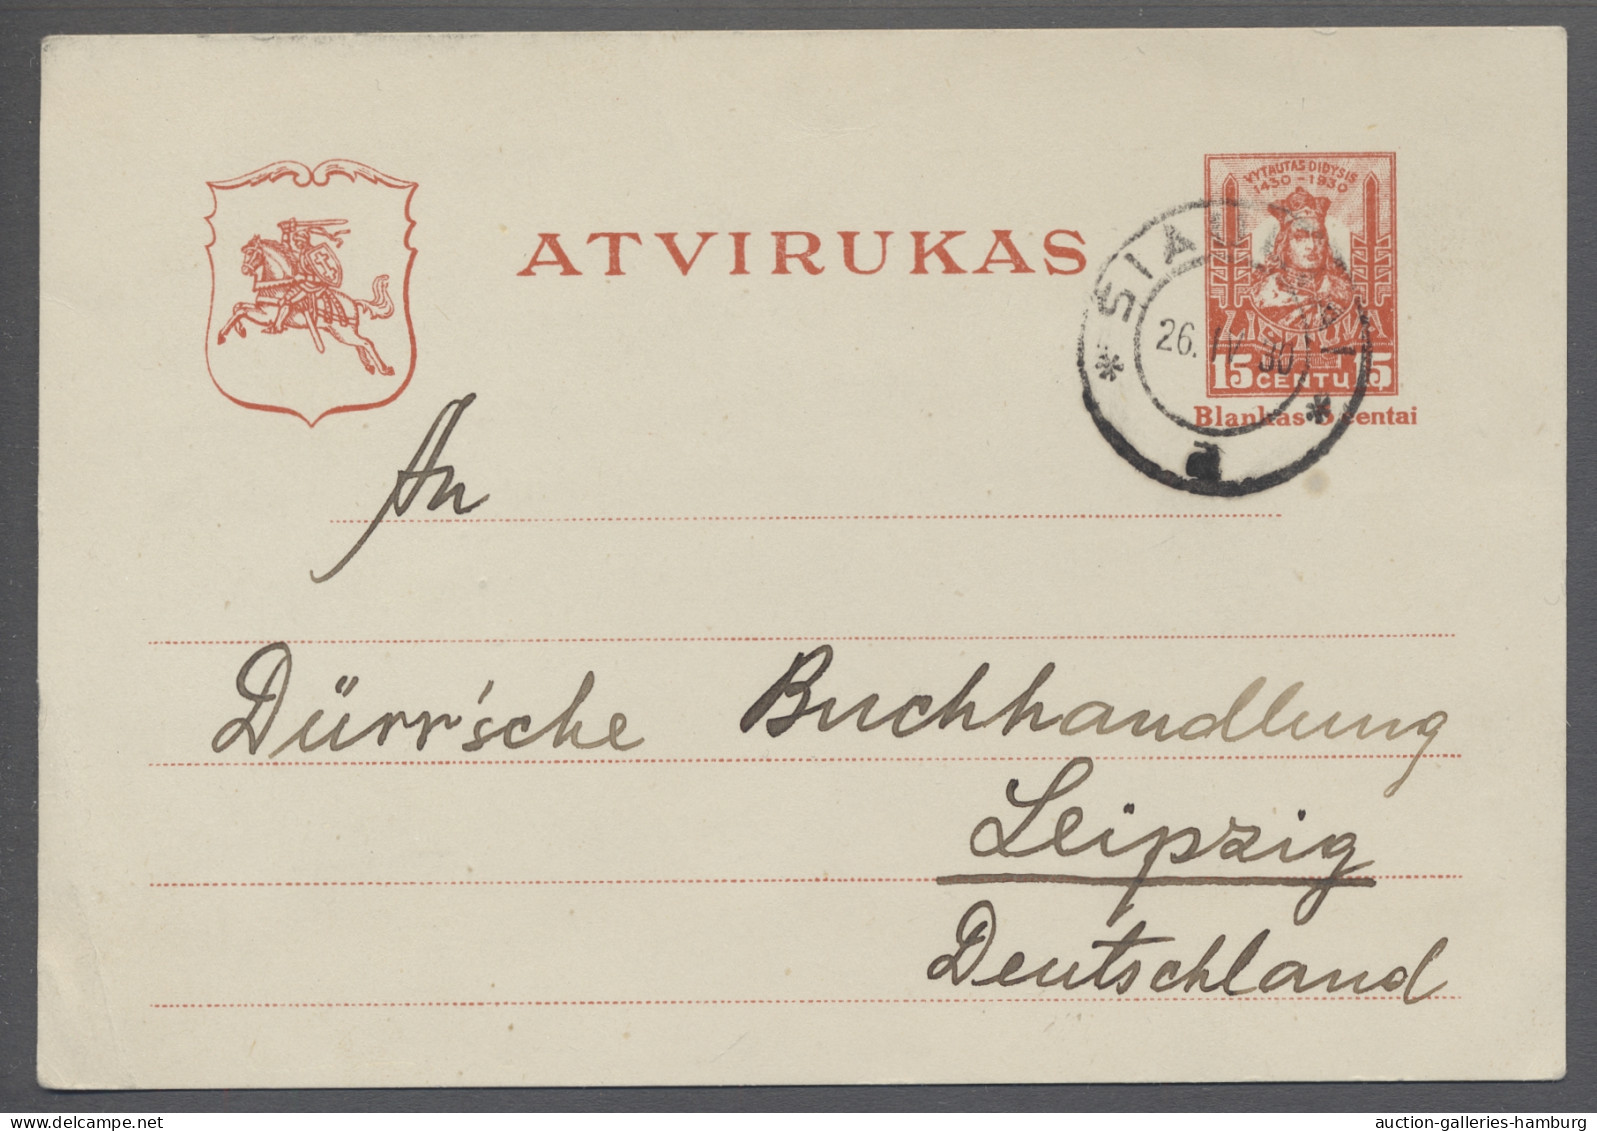 ATVIRUKAS
VYTAUTAS DIDYSIS
1430-1930
LIETUVA
15 CENTŲ 15
Blankas 5 centai
ŠIAULIAI
26. IV 30
An
Dürr'sche Buchhandlung
Leipzig
Deutschland
auction-galleries-hamburg